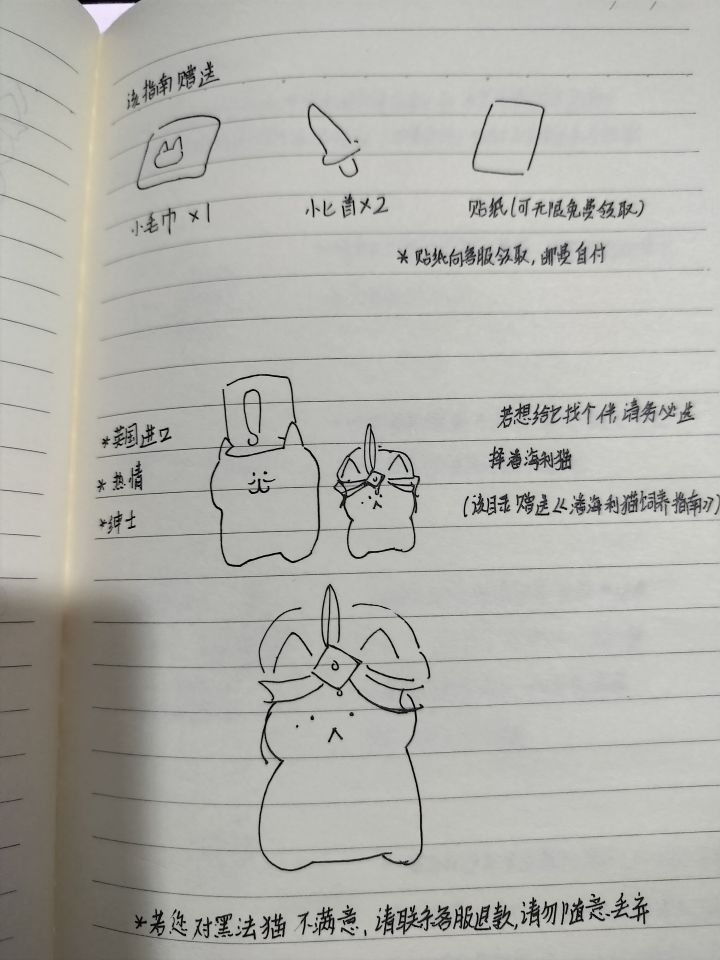 该指南赠送
小毛巾 ×1
小匕首×2
贴纸(可无限免费领取)
*贴纸向客服领取,邮费自付
*英国进口
*热情
*绅士
若想给它找个伴,请务必选
择潘海利猫
(该目录赠送《潘海利猫饲养指南》)
*若您对黑法猫不满意,请联系客服退款,请勿随意丢弃